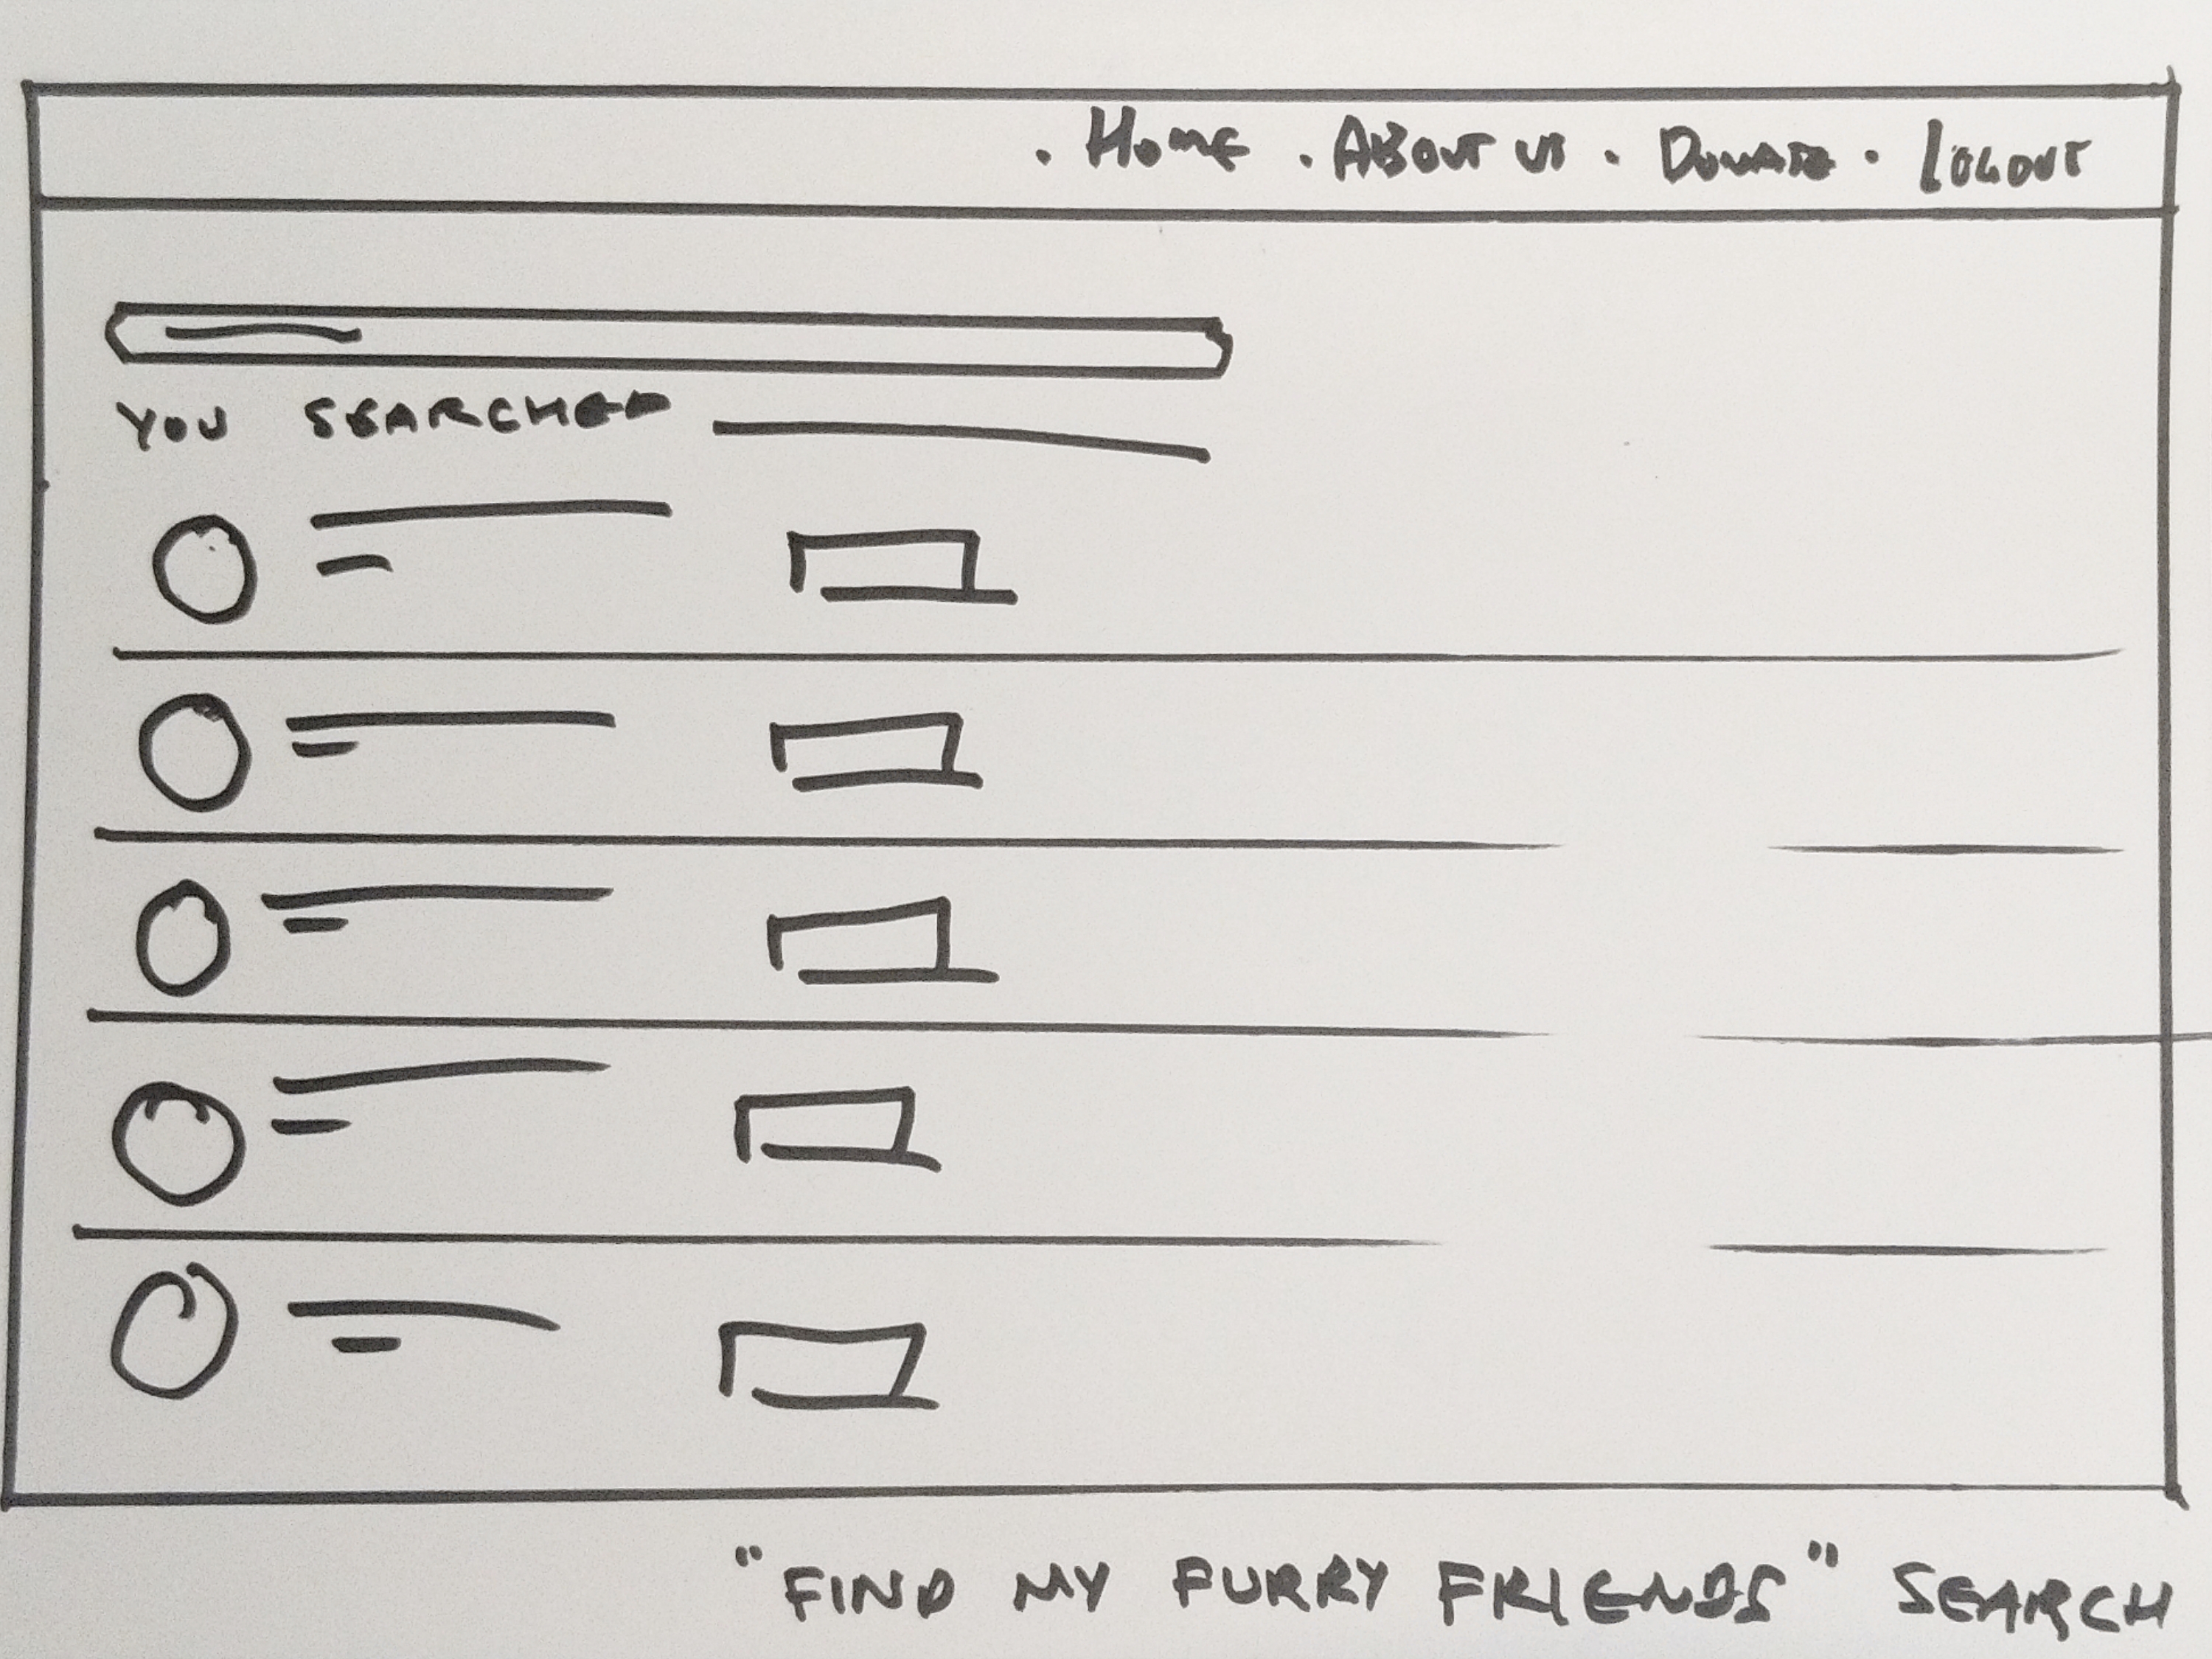 . Home . About us . Donate . Logout
YOU SEARCHED
"FIND MY FURRY FRIENDS" SEARCH